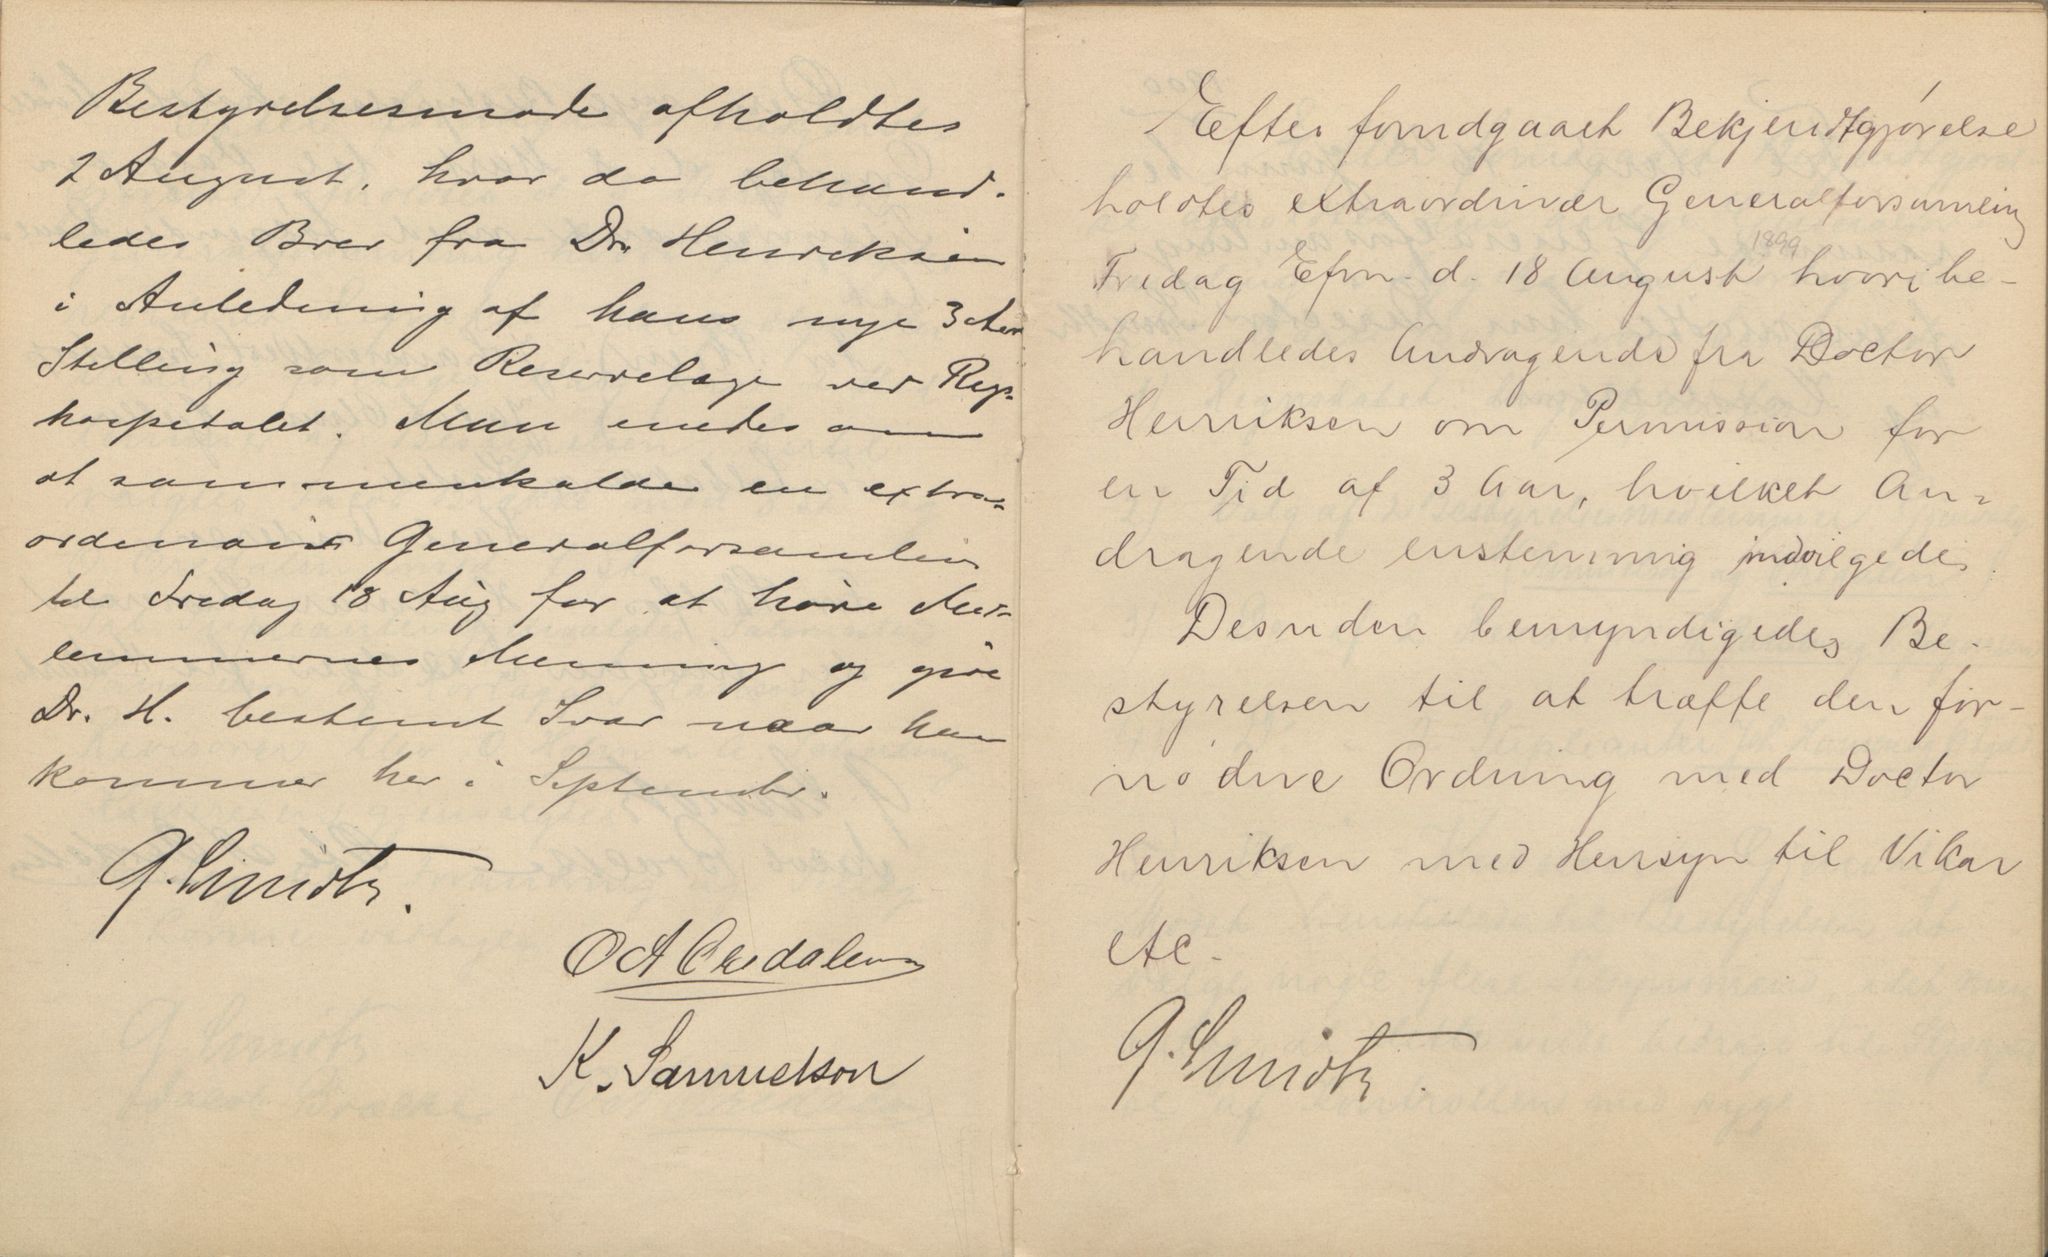 Bestyrelsesmøde afholdtes
2 August. hvor da behand-
ledes Brev fra Dr. Henriksen
i Anledning af hans nye 3 Aars
Stilling som Reservelæge ved Rigs-
hospitalet. Man enedes om
at sammenkalde en extra-
ordinair Generalforsamling
til Fredag 18 Aug for at høre Med-
lemmernes Mening og give
Dr. H. bestemt Svar naar han
kommer her i September.
G. Smidth.
K. Samuelson
Efter forudgaaet Bekjendtgjørelse
holdtes extraordinær Generalforsamling
Fredag Efm. d. 18 August 1899 hvori be-
handledes Andragende fra Doctor
Henriksen om Permission for
en Tid af 3 Aar, hvilket An-
dragende enstemmig indvilgedes.
Desuden bemyndigedes Be-
styrelsen til at træffe den for-
nødne Ordning med Doctor
Henriksen med Hensyn til Vikar
etc.
G. Smidth.